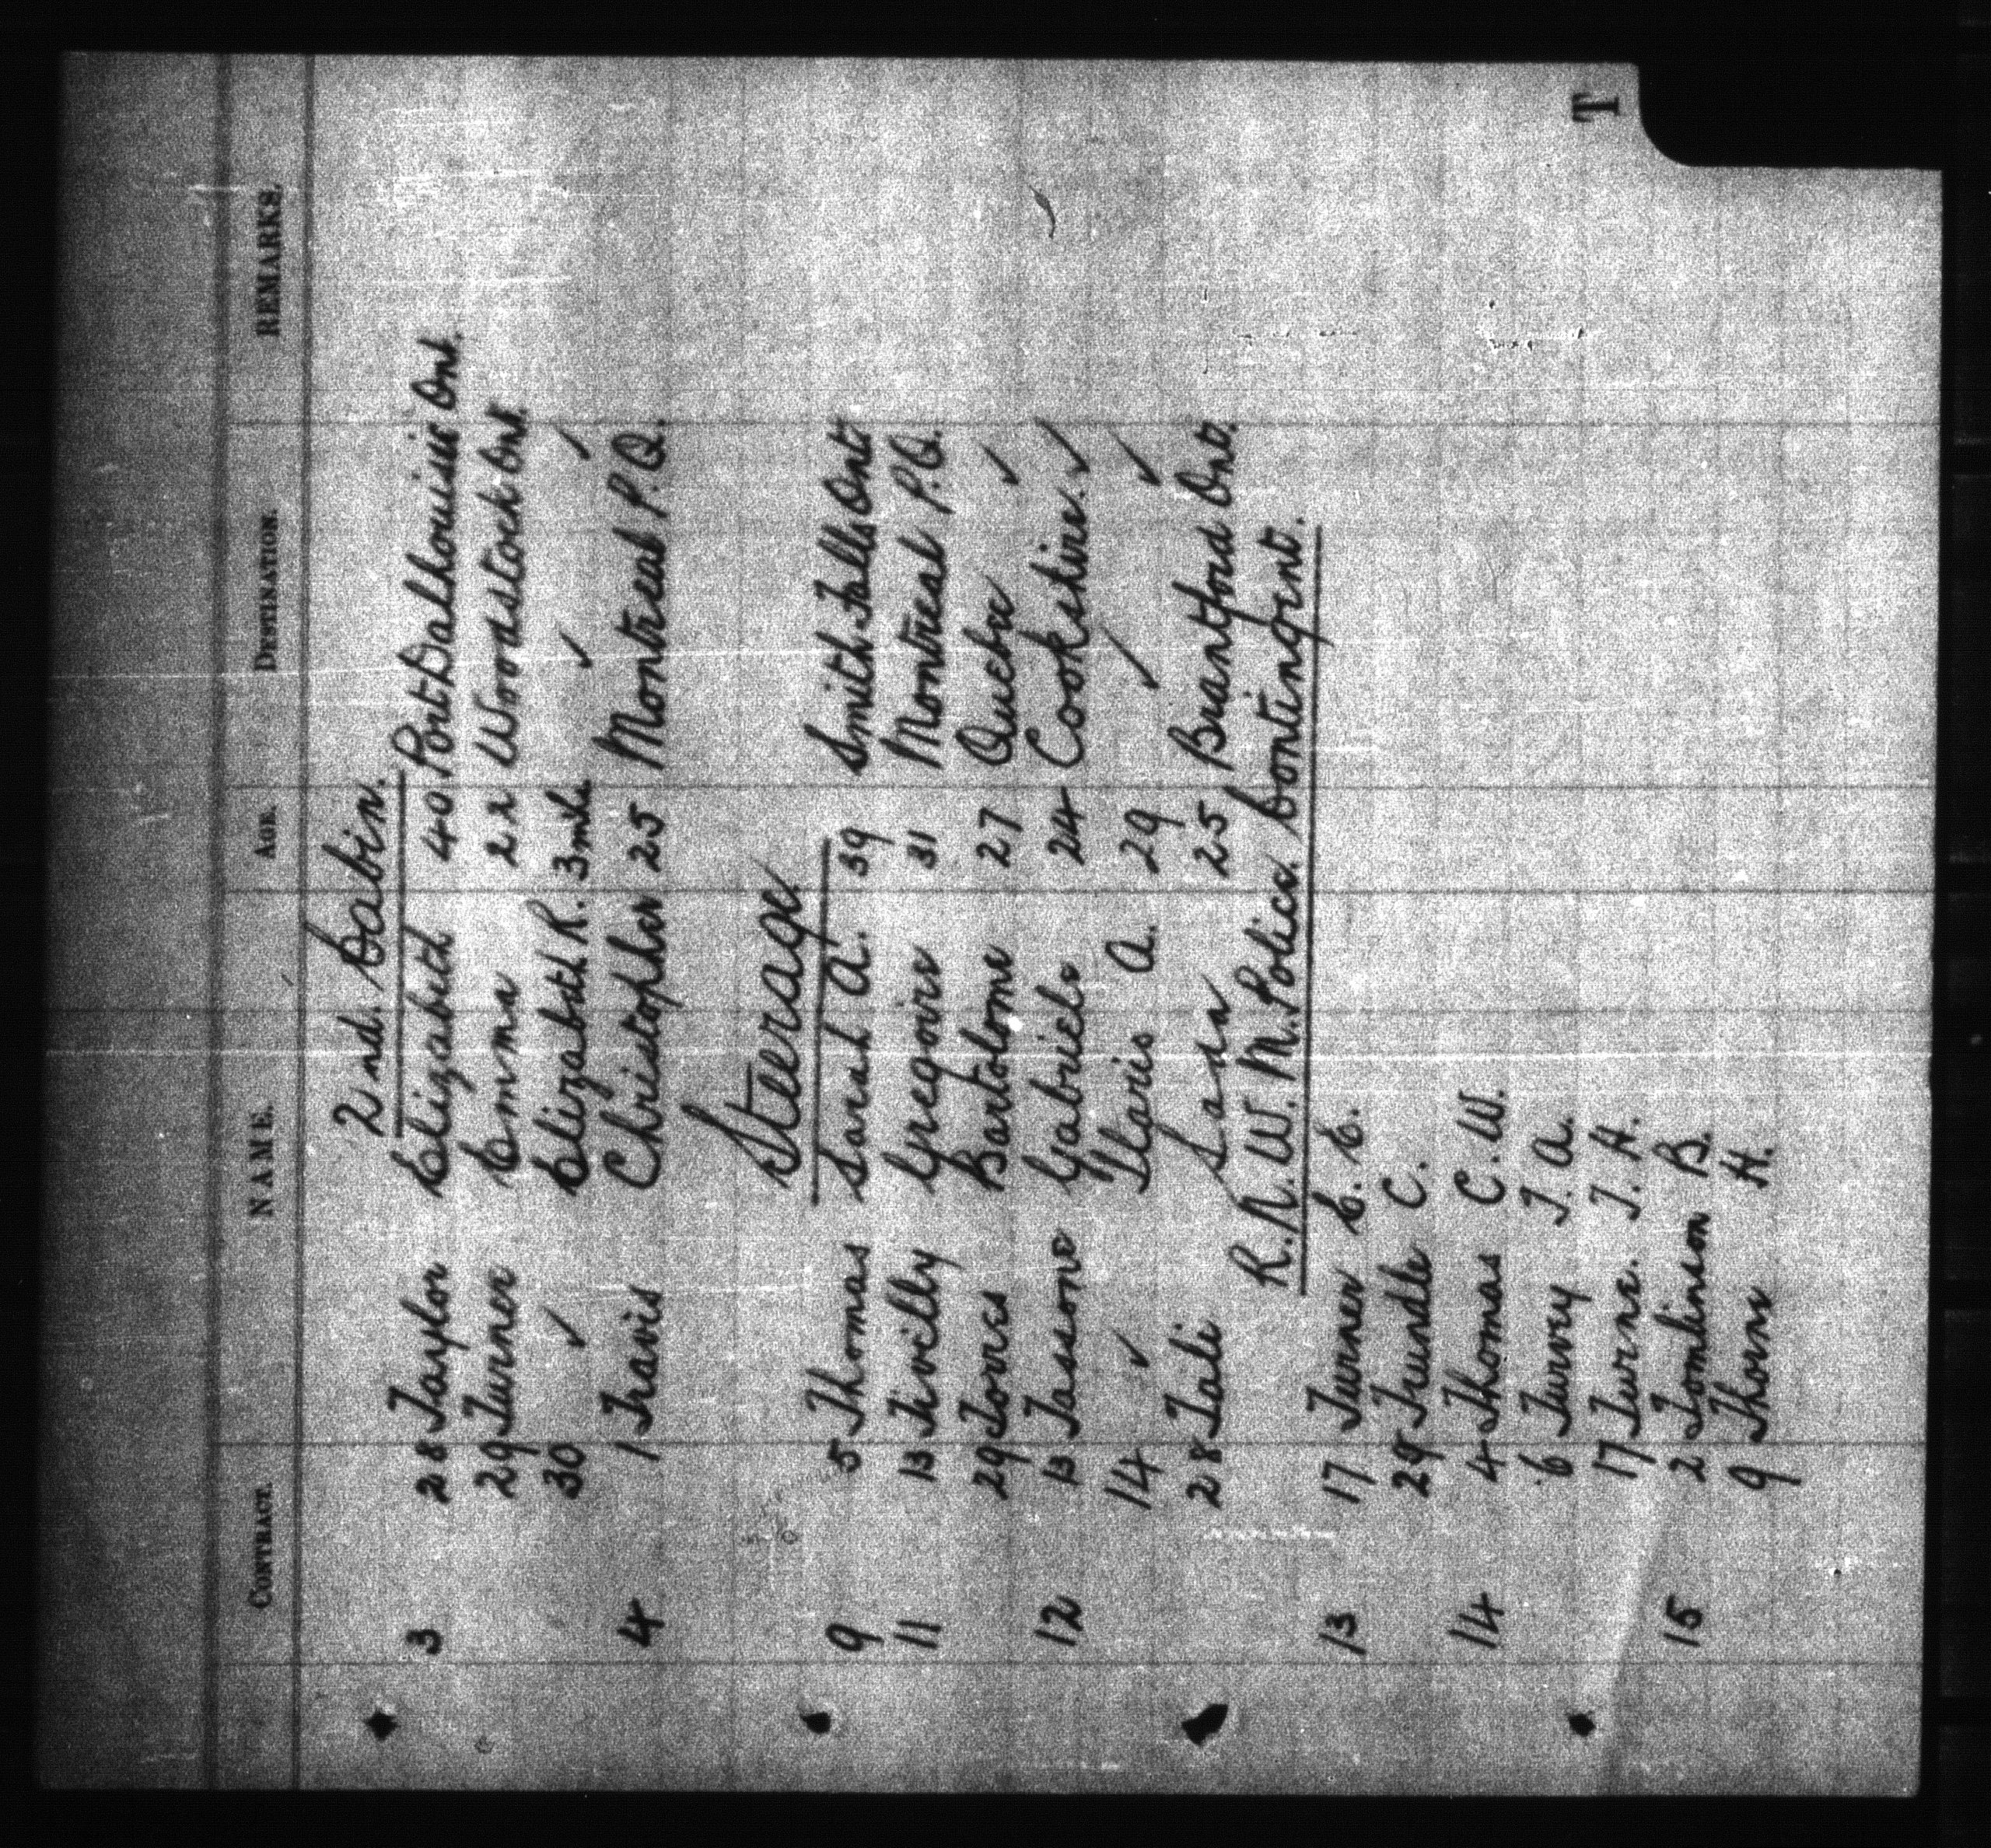 T
CONTRACT. NAME. AGE. DESTINATION. REMARKS.
2nd. Cabin.
3 28 Taylor Elizabeth 40 Port Dalhousie Ont.
29 Turner Emma 22 Woodstock Ont.
30 ✓ Elizabeth R. 3 mths ✓ ✓
4 1 Travis Christopher 25 Montreal P.Q.
Steerage
9 5 Thomas Sarah A. 39 Smith Falls Ont
11 13 Tivilly Gregoire 31 Montreal P.Q.
29 Torres Bartolome 27 Quebec ✓
12 13 Tassone Gabriele 24 Cookshire ✓
14 ✓ Ilario A. 29 ✓ ✓
28 Tali 25 Brantford Ont.
R.N.W.M. Police Contingent.
13 17 Turner E. E.
29 Trundle C.
14 4 Thomas C. W.
6 Turvey J. A.
17 Turne. J. H.
15 2 Tomlinson B.
9 Thorn H.